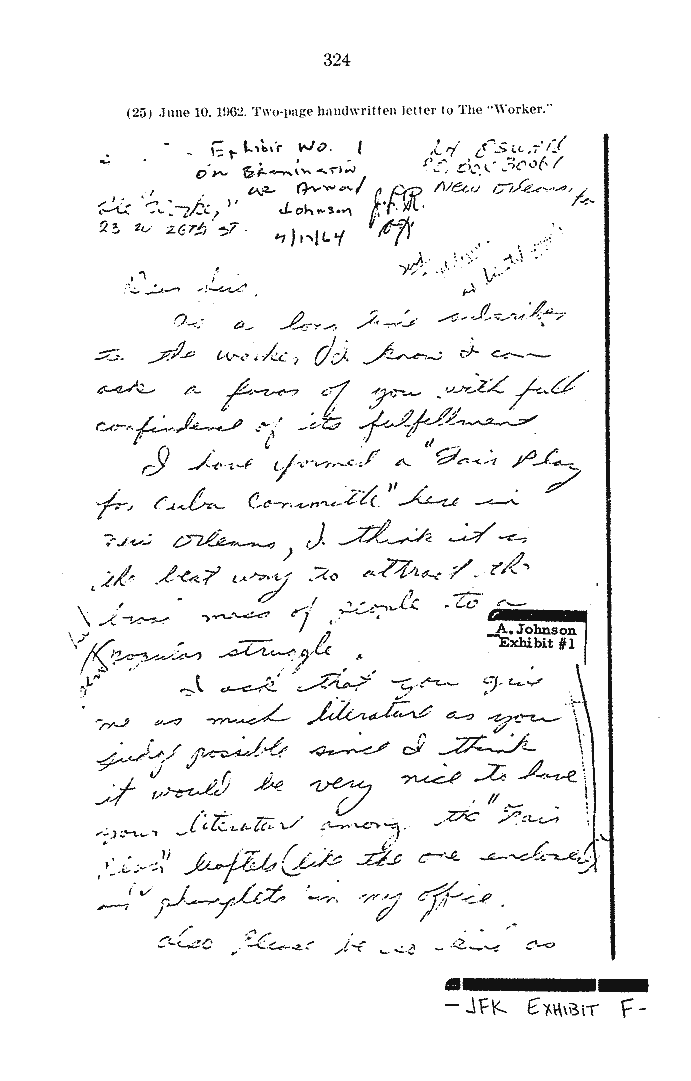 324
(25) June 10, 1962. Two-page handwritten letter to The "Worker."
Exhibit No. 1
on Examination
of Arnold
Johnson J.F.R.
4/17/64
LH Oswald
P.O. Box 30061
New Orleans, La
The "Worker,"
23 W 26TH ST.
Dear Sirs,
As a long time subscriber
to the worker I know I can
ask a favor of you with full
confindenel of its fulfellment
I have formed a "Fair Play
for Cuba Committe" here in
New Orleans, I think it is
the best way to attract the
broad mass of people to a
popular struggle.
I ask that you give
me as much literature as you
judge possible since I think
it would be very nice to have
your literature among the "Fair
Play" leaftels (like the one enclosed)
and phamplets in my office.
Also please be so kind as
A. Johnson
Exhibit #1
- JFK EXHIBIT F-